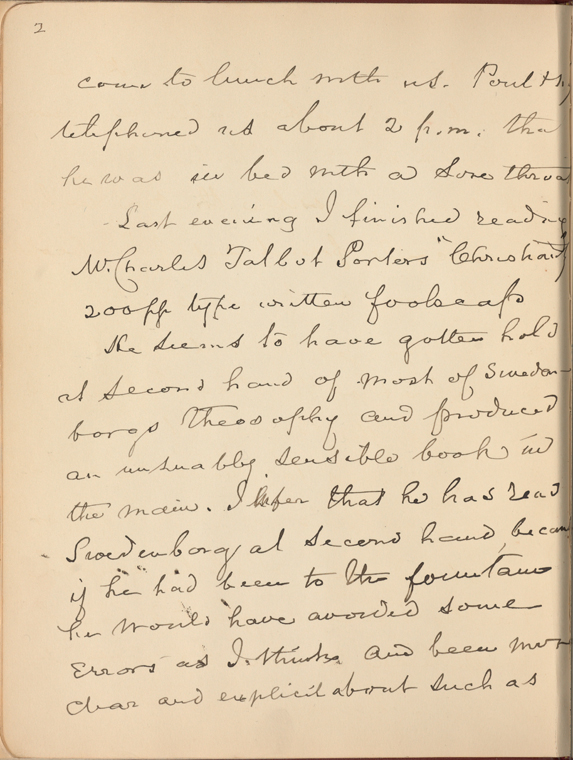 2
come to lunch with us. Paul
telephoned us about 2 p.m. tha
he was in bed with a sore throa
Last evening I finished readin
Mr. Charles Talbot Porters "
200 pp type written foolscaps
He seems to have gotten hold
at second hand of most of Sweden-
borgs theosophy and produced
an unusually sensible book in
the main. I infer that he has read
Swedenborg at second hand becau
if he had been to the fountain
he would have avoided some
errors as I think and been mor
clear and explicit about such as